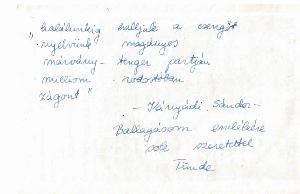 "halálunkig halljuk a csengőt
nyelvünk magányos
márvány- tenger partján
milliom rodostóban
zágont"
- Kányádi Sándor -
Ballagásom emlékére
sok szeretettel
Tünde